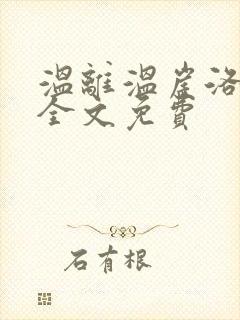 溫離溫崖洛
全文免費
石有根